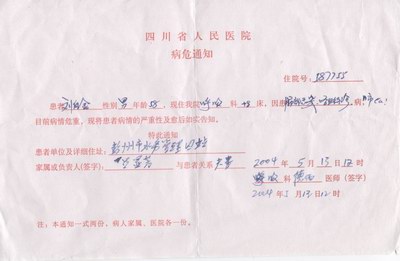 四川省人民医院
病危通知
住院号：587755
患者 性别 男 年龄 58，现住我院 呼吸 科 床，因患 病
目前病情危重，现将患者病情的严重性及愈后如实告知。
特此通知
患者单位及详细住址：彭州市
家属或负责人(签字)： 与患者关系 夫妻 2004 年 5 月 13 日 12 时
呼吸 科 医师（签字）
2004 年 5 月 13 日 12 时
注：本通知一式两份，病人家属、医院各一份。